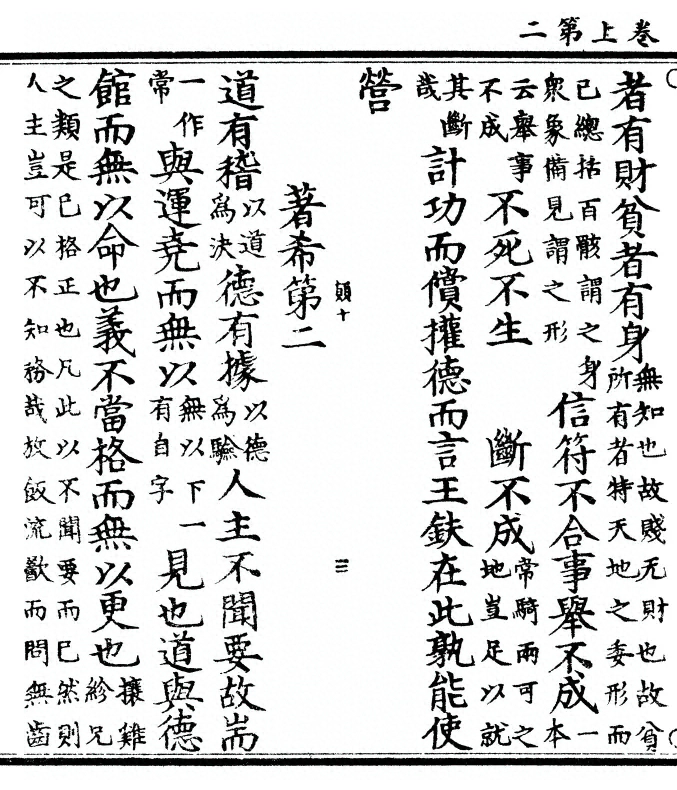 卷上第二
者有財貧者有身無知也故賤无財也故貧所有者特天地之委形而
已總括百骸謂之身衆象備見謂之形信符不合事舉不成一本
云舉事不成不死不生 斷不成常騎兩可之地豈足以就
其斷哉計功而償權德而言王鈇在此孰能使
營
十
三
著希第二
道有稽以道爲決德有據以德爲驗人主不聞要故耑
一作常與運堯而無以無以下一有自字見也道與德
館而無以命也義不當格而無以更也攘雞紾兄
之類是已格正也凡此以不聞要而已然則
人主豈可以不知務哉放飯流歠而問無齒